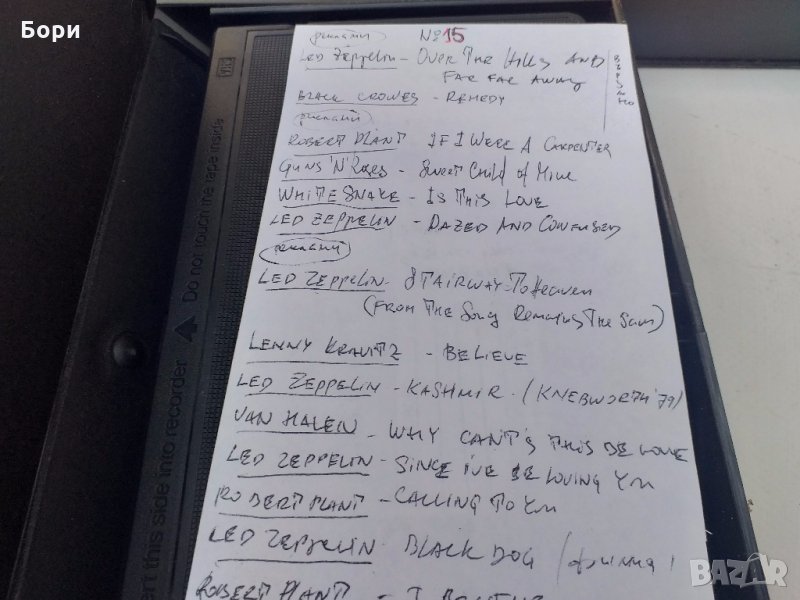 Бори
реклами
№ 15
LED ZEPPELIN - OVER THE HILLS AND
FAR FAR AWAY
BLACK CROWES - REMEDY
реклами
ROBERT PLANT IF I WERE A CARPENTER
GUNS 'N' ROSES - SWEET CHILD OF MINE
WHITE SNAKE - IS THIS LOVE
LED ZEPPELIN - DAZED AND CONFUSED
реклами
LED ZEPPELIN - STAIRWAY TO HEAVEN
(FROM THE SONG REMAINS THE SAME)
LENNY KRAVITZ - BELIEVE
LED ZEPPELIN - KASHMIR. (KNEBWORTH '79)
VAN HALEN - WHY CAN'T THIS BE LOVE
LED ZEPPELIN - SINCE I'VE BE LOVING YOU
ROBERT PLANT - CALLING TO YOU
LED ZEPPELIN - BLACK DOG
ROBERT PLANT - I
Do not touch the tape inside
ert this side into recorder
BAZAR